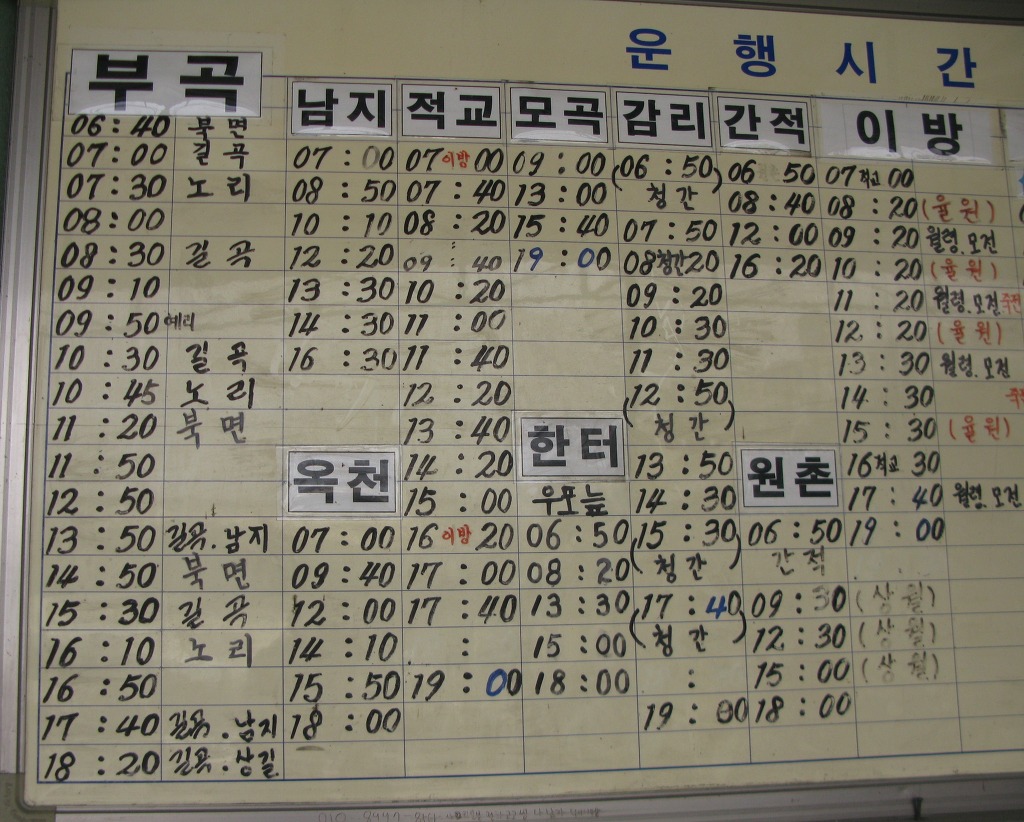 운 행 시 간
부곡 남지 적교 모곡 감리 간적 이방
06:40 북면
07:00 길곡 07:00 07이방00 09:00 (06:50) 06:50 07적교00
07:30 노리 08:50 07:40 13:00 청간 08:40 08:20 (율원)
08:00 10:10 08:20 15:40 07:50 12:00 09:20 월령.모전
08:30 길곡 12:20 09:40 19:00 08청간20 16:20 10:20 (율원)
09:10 13:30 10:20 09:20 11:20 월령.모전
09:50 예리 14:30 11:00 10:30 12:20 (율원)
10:30 길곡 16:30 11:40 11:30 13:30 월령.모전
10:45 노리 12:20 (12:50) 14:30
11:20 북면 13:40 한터 청간 15:30 (율원)
11:50 옥천 14:20 13:50 원촌 16적교30
12:50 15:00 우포늪 14:30 17:40 월령.모전
13:50 길곡.남지 07:00 16이방20 06:50 (15:30) 06:50 19:00
14:50 북면 09:40 17:00 08:20 청간 간적
15:30 길곡 12:00 17:40 13:30 (17:40) 09:30 (상월)
16:10 노리 14:10 : 15:00 (청간) 12:30 (상월)
16:50 15:50 19:00 18:00 : 15:00 (상월)
17:40 길곡.남지 18:00 19:00 18:00
18:20 길곡.상길